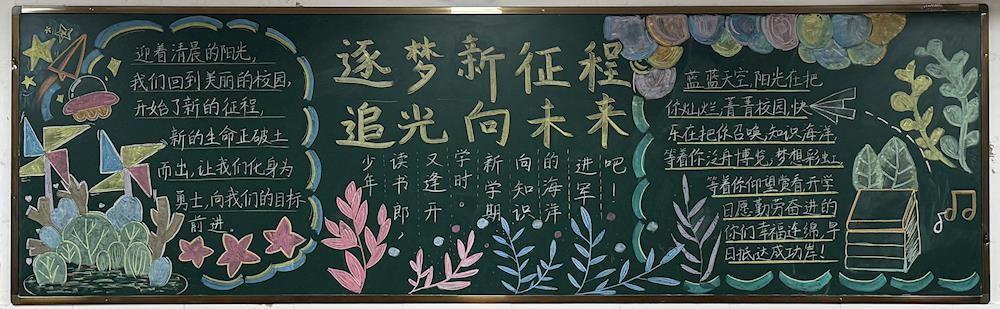 迎着清晨的阳光,
我们回到美丽的校园,
开始了新的征程,
新的生命正破土
而出,让我们化身为
勇士,向我们的目标
前进。
逐梦新征程
追光向未来
少年
读书郎,
又逢开
学时。
新学期
向知识
的海洋
进军
吧!
蓝蓝天空,阳光在把
你灿烂,青青校园,快
乐在把你召唤,知识海洋,
等着你泛舟博览,梦想彩虹,
等着你仰望赏看,开学
日愿勤劳奋进的
你们幸福连绵,早
日抵达成功岸!